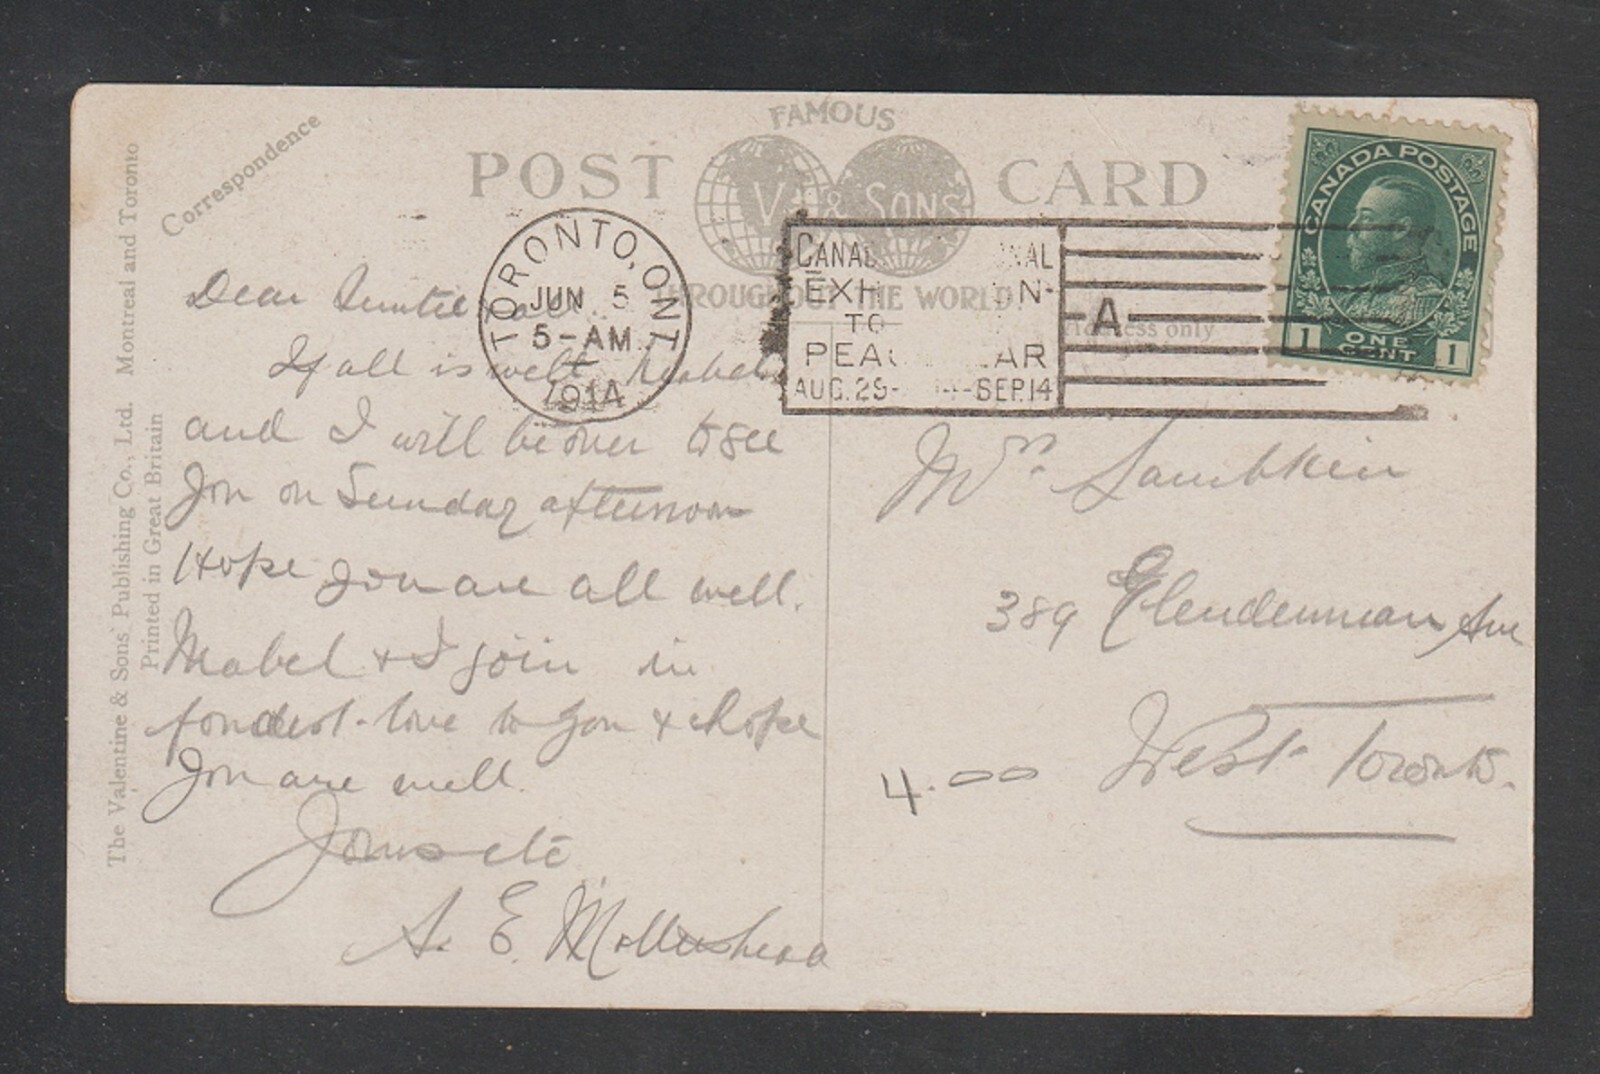 Correspondence
FAMOUS
POST CARD
V & SONS
THROUGHOUT THE WORLD.
Address only
TORONTO, ONT.
JUN 5
5-AM
1914
CANAD NAL
EXH N-
TO
PEAC AR
AUG. 29- SEP.14
A
CANADA POSTAGE
1 ONE CENT 1
Dear Auntie
If all is well Mabel
and I will be over to see
you on Sunday afternoon
Hope you are all well.
Mabel & I join in
fondest love to you & Hope
you are well.
Yours etc
A. E.
Mrs Sambkin
389 Clendenman Ave
West Toronto.
4.00
The Valentine & Sons' Publishing Co., Ltd. Montreal and Toronto
Printed in Great Britain